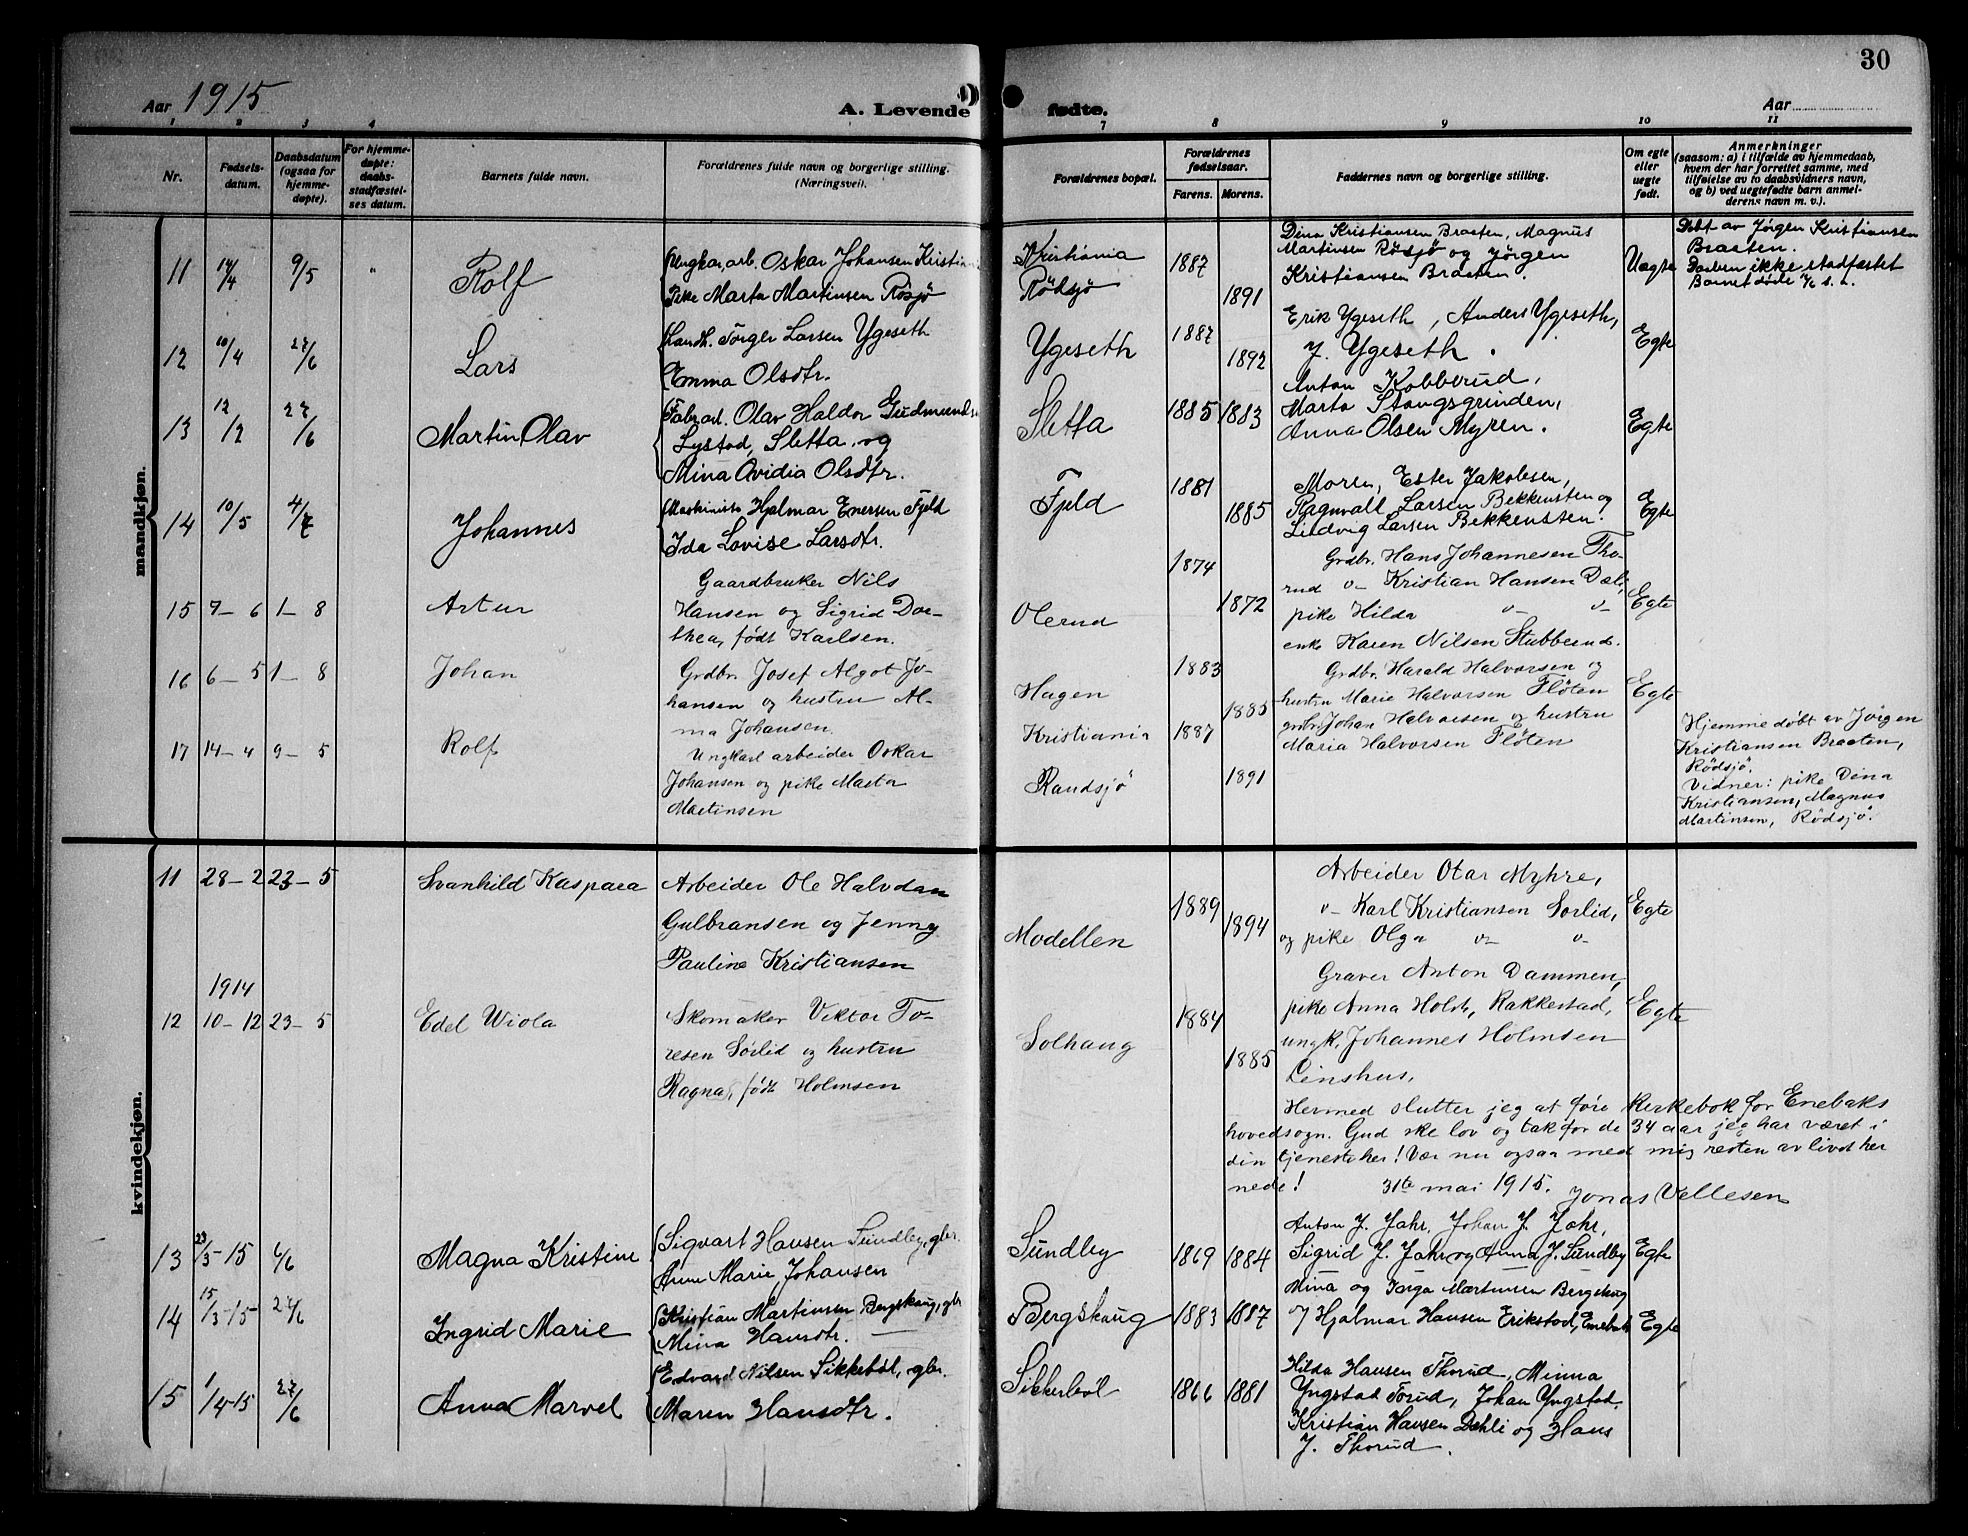 30
Aar 1915
A. Levende fødte.
Aar
1 2 3 4 7 8 9 10 11
Nr.
Fødsels-
datum.
Daabsdatum
(ogsaa for
hjemme-
døpte).
For hjemme-
døpte:
daabs-
stadfæstel-
ses datum.
Barnets fulde navn.
Forældrenes fulde navn og borgerlige stilling.
(Næringsvei).
Forældrenes bopæl.
Forældrenes
fødselsaar.
Farens. Morens.
Faddernes navn og borgerlige stilling.
Om egte
eller
uegte
født.
Anmerkninger
(saasom: a) i tilfælde av hjemmedaab,
hvem der har forrettet samme, med
tilføielse av to daabsvidners navn,
og b) ved uegtefødte barn anmel-
derens navn m. v.).
mandkjøn.
11 14/4 9/5 Rolf
Ungkar, arb. Oskar Johansen Kristian
Pike Marta Martinsen Røsjö
Kristiania
Rödsjö
1887 1891
Dina Kristiansen Braaten, Magnus
Martinsen Rösjö og Jörgen
Kristiansen Braaten.
Uegte
Döbt av Jørgen Kristiansen
Braaten.
Daaben ikke stadfæstet
Barnet döde
12 10/4 27/6 Lars
Landh. Törger Larsen Ygeseth
Emma Olsdtr.
Ygeseth
1887 1892
Erik Ygeseth, Anders Ygeseth,
J. Ygeseth.
Egte
13 12/2 27/6 Martin Olav
Fabr.arb. Olav Haldor Gudmunds
Lystad, Sletta, og
Mina Ovidia Olsdtr.
Sletta
1885 1883
Anton Kobberud,
Marta Stangsgrinden,
Anna Olsen Myren.
Egte
14 10/5 4/7 Johannes
Maskinist Hjalmar Enersen Fjeld
Ida Lovise Larsdtr.
Fjeld
1881 1885
Moren, Ester Jakobsen,
Ragnvalt Larsen Bekkensten og
Ludvig Larsen Bekkensten.
Egte
15 7-6 1-8 Artur
Gaardbruker Nils
Hansen og Sigrid Dor-
thea, født Karlsen.
Olerud
1874 1872
Grdbr. Hans Johannesen Tho-
rud v- Kristian Hansen Dæli,
pike Hilda v- v-
enke Karen Nilsen Stubberud.
Egte
16 6-5 1-8 Johan
Grdbr. Josef Algot Jo-
hansen og hustru Al-
ma Johansen.
Hagen
1883 1885
Grdbr. Harald Halvorsen og
hustru Marie Halvorsen Flöten
grdbr. Johan Halvorsen og hustru
Maria Halvorsen Flöten
Egte
17 14-4 9-5 Rolf
Ungkarl arbeider Oskar
Johansen og pike Marta
Martinsen
Kristiania
Randsjö
1887 1891
Hjemmedöbt av Jörgen
Kristiansen Braaten,
Rödsjö.
Vidner: pike Dina
Kristiansen, Magnus
Martinsen, Rödsjö.
kvindekjøn.
11 28-2 23-5 Svanhild Kaspara
Arbeider Ole Halvdan
Gulbransen og Jenny
Pauline Kristiansen
Modellen
1889 1894
Arbeider Otar Myhre,
v- Karl Kristiansen Sorlid,
og pike Olga v- v-
Egte
1914
12 10-12 23-5 Edel Wiola
Skomaker Viktor To-
resen Sörlid og hustru
Ragna, födt Holmsen
Solhaug
1884 1885
Graver Anton Dammen,
pike Anna Holst, Rakkestad,
ungk. Johannes Holmsen
Linshus,
Egte
Hermed slutter jeg at före kirkebok for Enebaks
hovedsogn. Gud ske lov og tak for de 34 aar jeg har været i
din tjeneste her! Vær nu ogsaa med mig resten av livet her
nede! 31te mai 1915. Jonas Vellesen
13 23/3-15 6/6 Magna Kristine
Sigvart Hansen Sundby, gbr.
Anne Marie Johansen
Sundby
1869 1884
Anton J. Jahr, Johan J. Jahr,
Sigrid J. Jahr og Anna J. Sundby
Egte
14 15/3-15 27/6 Ingrid Marie
Kristian Martinsen Bergskaug, gbr
Mina Hansdtr.
Bergskaug
1883 1887
Mina og Inga Martinsen Bergskaug
og Hjalmar Hansen Erikstad, Enebak
Egte
15 1/4-15 27/6 Anna Marvel
Edvard Nilsen Sikkebøl, gbr.
Maren Hansdtr.
Sikkebøl
1866 1881
Hilda Hansen Thorud, Minna
Yngstad Torud, Johan Yngstad,
Kristian Hansen Dehli og Hans
J. Thorud.